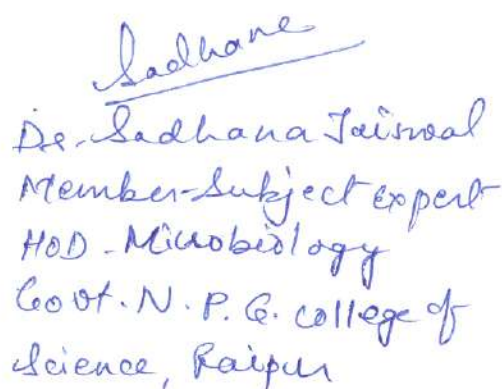 Sadhana
Dr. Sadhana Jaiswal
Member-Subject expert
HOD - Microbiology
Govt. N. P. G. college of
Science, Raipur